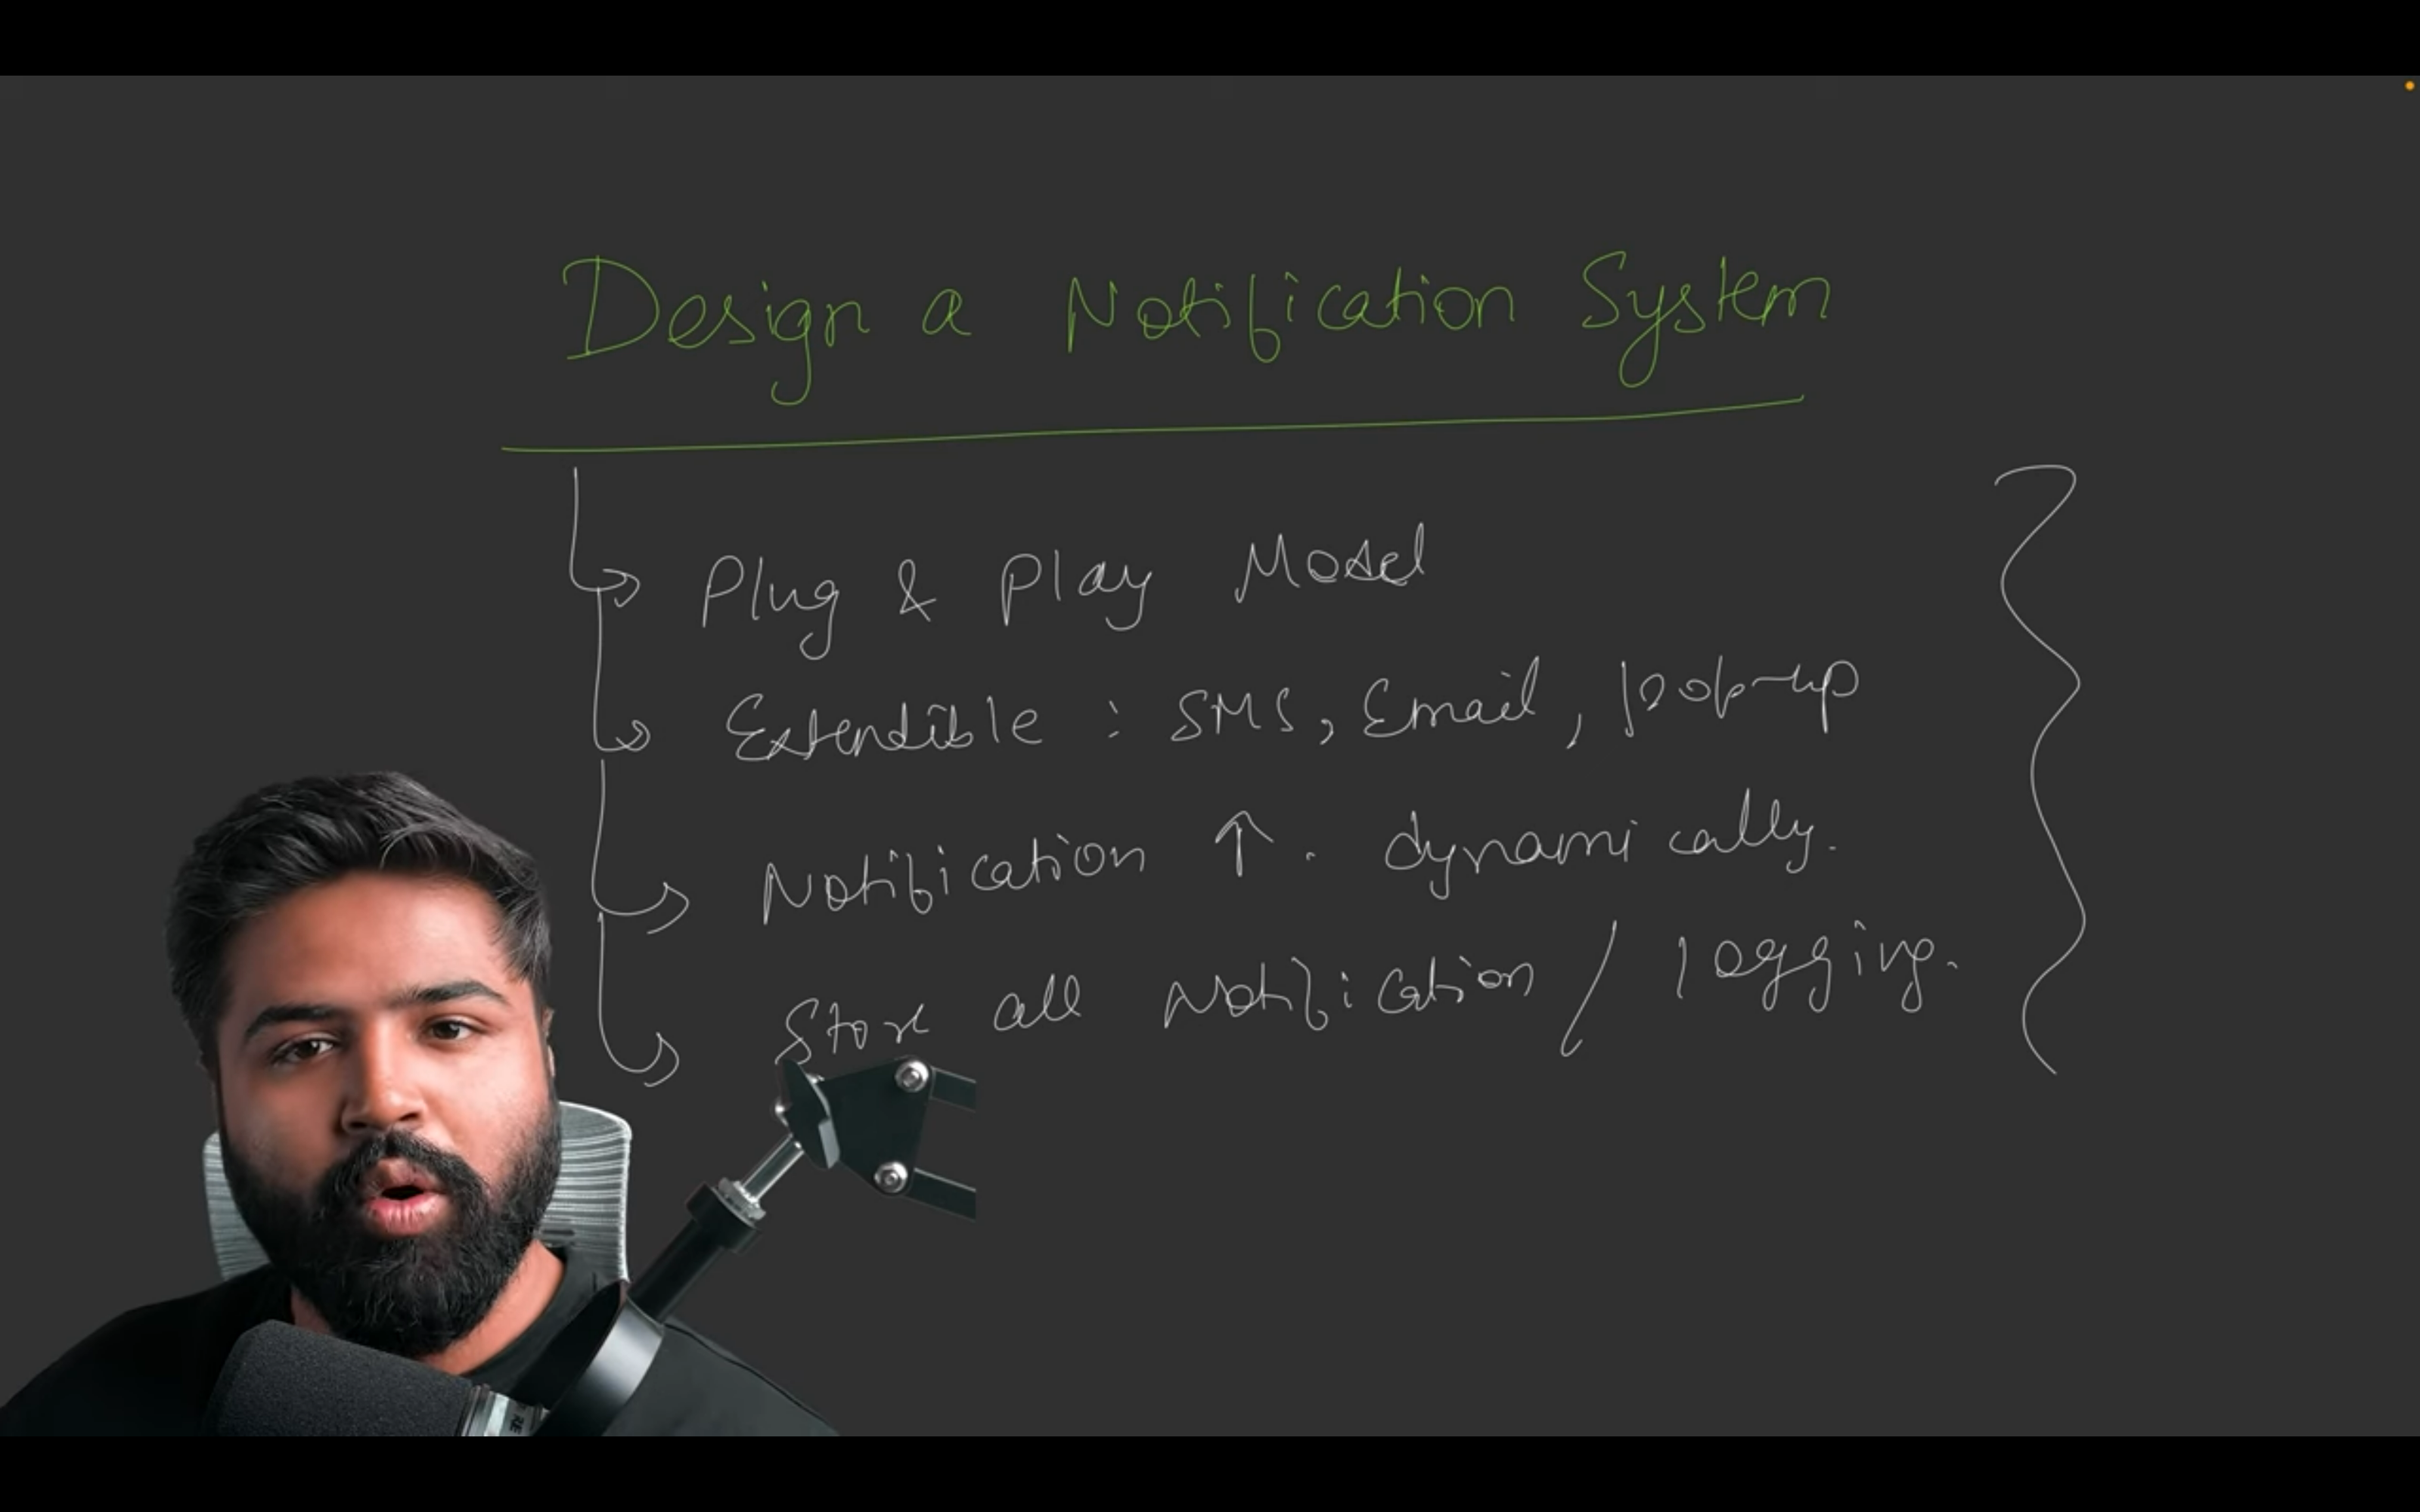 Design a Notification System
Plug & Play Model
Extendible : SMS, Email, pop-up
Notification ↑. dynamically.
Store all Notification / logging.
RE